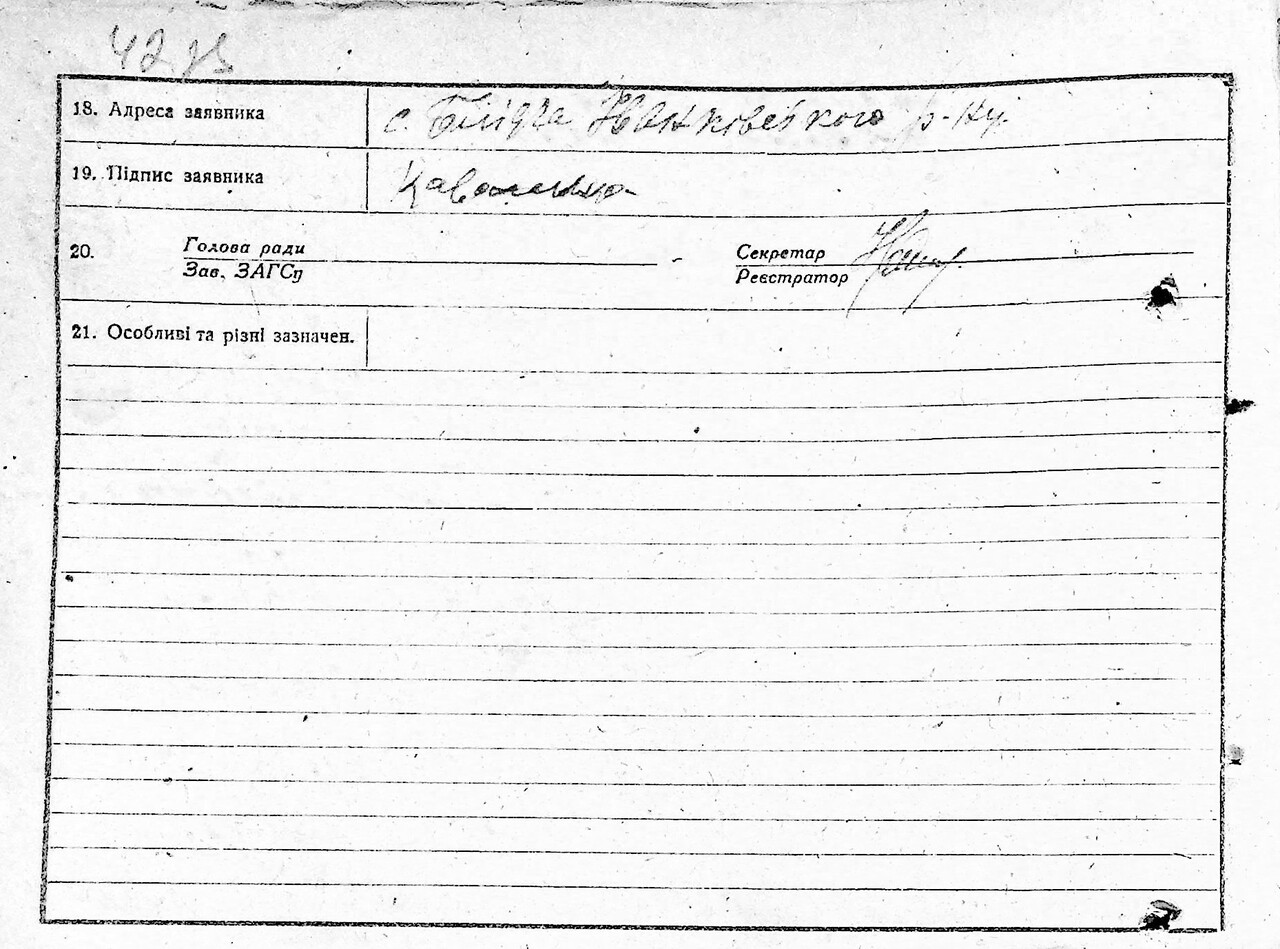 42 зв
18. Адреса заявника с. Блідча Іванковського р-ну.
19. Підпис заявника
20. Голова ради Секретар
Зав. ЗАГСу Реєстратор
21. Особливі та різні зазначен.